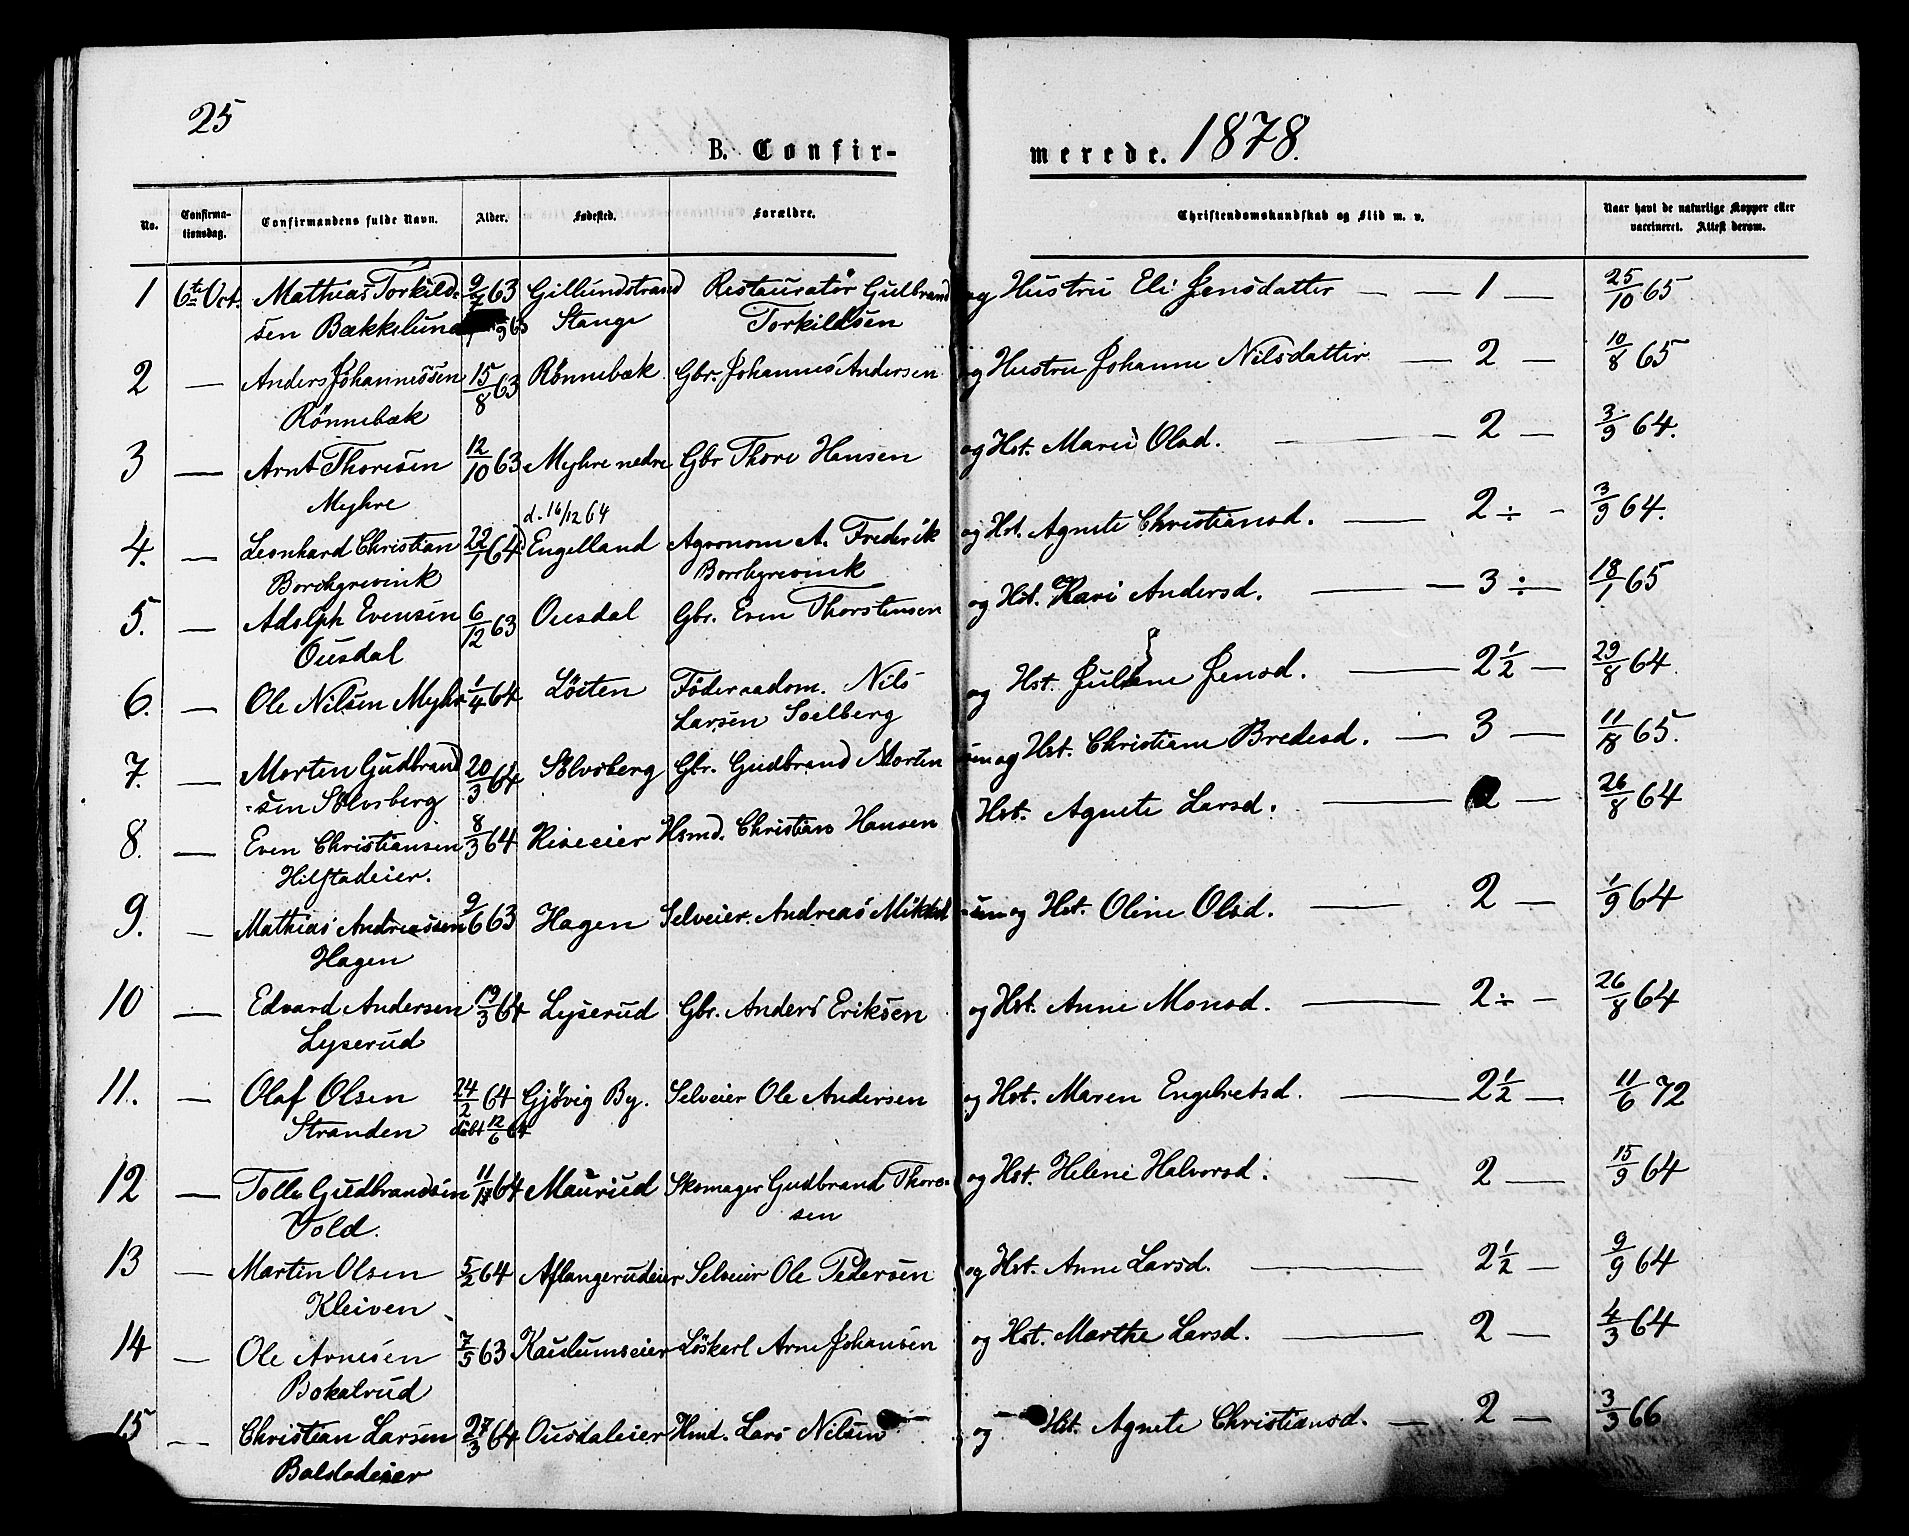 25
B. Confir-
merede. 1878.
No.
Confirma-
tionsdag.
Confirmandens fulde Navn.
Alder.
Fødested.
Forældre.
Christendomskundskab og Flid m. v.
Naar havt de naturlige Kopper eller
vaccineret. Attest derom.
1 6te Oct. Mathias Torkild- 9/7 63 Gillundstrand Restauratør Gulbrand og Hustru Eli Jensdatter — — 1 — 25/10 65
sen Bækkelund Stange Torkildsen
2 — Anders Johannessen 15/8 63 Rønnebæk Gbr. Johannes Andersen og Hustru Johanne Nilsdatter — 2 — 10/8 65
Rønnebæk
3 — Arnt Thoresen 12/10 63 Myhre nedre Gbr Thore Hansen og Hst. Marie Olsd. — 2 — 3/9 64.
Myhre
d. 16/12 64
4. — Leonhard Christian 22/1 64 Engelland Agronom A. Frederik og Hst. Agnete Christiansd. — 2 ÷ — 3/9 64.
Borchgrevink Borchgrevink
5. — Adolph Evensen 6/12 63 Ousdal Gbr. Even Thorstensen og Hst. Kari Andersd. — 3 ÷ — 18/1 65
Ousdal
6. — Ole Nilsen Myhr 1/4 64 Löiten Föderaadsm. Nils og Hst. Juliane Jensd. — 2 1/2 — 29/8 64
Larsen Soelberg
7. — Morten Gudbrand 20/3 64 Sølvsberg Gbr. Gudbrand Morten sen og Hst. Christiane Bredesd. — 3 — 11/18 65.
-sen Sølvsberg
8. — Even Christiansen 8/3 64 Riseeier Hsmd. Christian Hansen Hst. Agnete Larsd. — 2 — 26/8 64
Hilstadeier.
9. — Mathias Andreassen 9/6 63 Hagen Selveier. Andreas Mikkel -sen og Hst. Oline Olsd. — 2 — 1/9 64
Hagen
10 — Edvard Andersen 19/3 64 Lyserud Gbr. Anders Eriksen og Hst. Anne Monsd. — 2 ÷ — 26/8 64
Lyserud
11. — Olaf Olsen 24/2 64 Gjövig By. Selveier Ole Andersen og Hst. Maren Engebretsd. — 2 1/2 — 11/6 72
Stranden döbt 12/6 64
12 — Tolle Gudbrandsen 11/ 64 Maurud Skomager Gudbrand Thore- og Hst. Helene Halvorsd. — 2 — 15/9 64
Vold. sen
13 — Martin Olsen 5/2 64 Aflangerudeier Selveier Ole Pedersen og Hst. Anne Larsd. — 2 1/2 — 9/9 64
Kleiven
14 — Ole Arnesen 7/5 63 Kaulumseier Löskarl Arne Johansen og Hst. Marthe Larsd. — 2 — 4/3 64
Bokalrud
15 — Christian Larsen 27/3 64 Ousdaleier Hmd. Lars Nilsen og Hst. Agnete Christiansd. — 2 — 3/3 66
Balstadeier